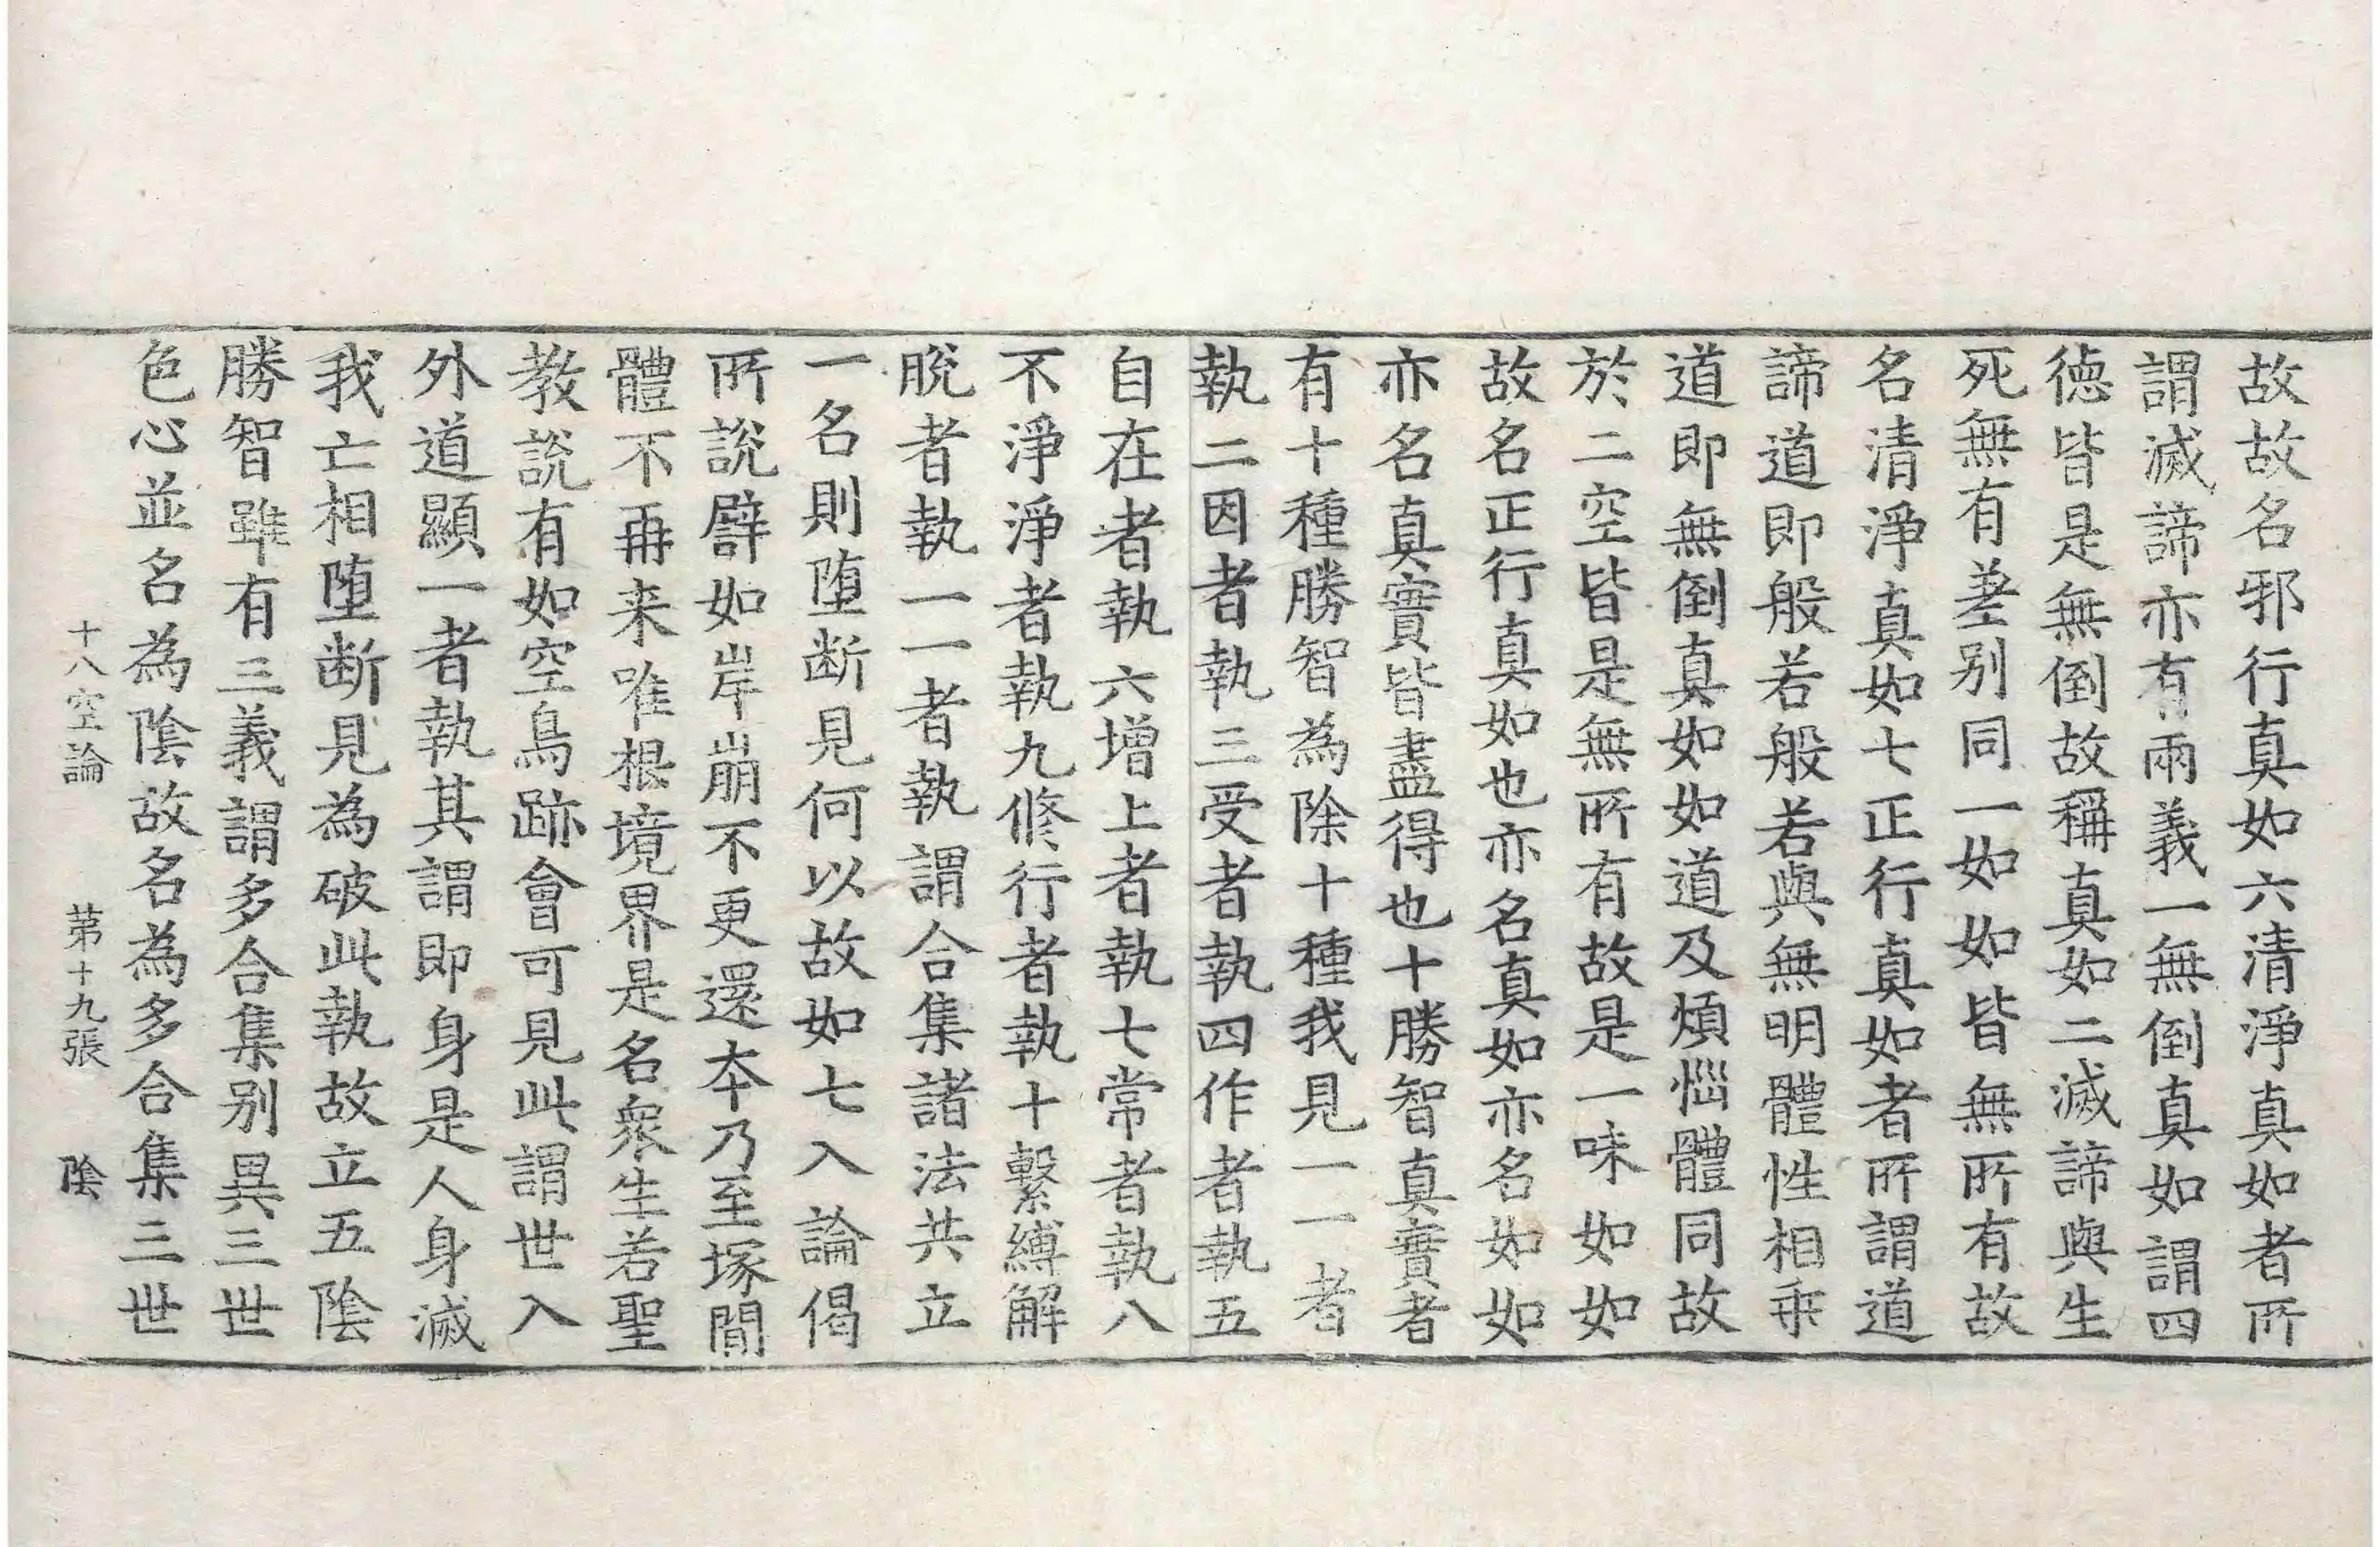 故故名邪行真如六清淨真如者所
謂滅諦亦有兩義一無倒真如謂四
德皆是無倒故稱真如二滅諦與生
死無有差别同一如如皆無所有故
名清淨真如七正行真如者所謂道
諦道即般若般若與無明體性相乖
道即無倒真如如道及煩惱體同故
於二空皆是無所有故是一味如如
故名正行真如也亦名真如亦名如如
亦名真實皆盡得也十勝智真實者
有十種勝智為除十種我見一一者
執二因者執三受者執四作者執五
自在者執六增上者執七常者執八
不淨淨者執九脩行者執十繫縛解
脫者執一一者執謂合集諸法共立
一名則墮断見何以故如七入論偈
所說譬如岸崩不更還本乃至塚間
體不再来唯根境界是名衆生若聖
教說有如空鳥跡會可見此謂世入
外道顯一者執其謂即身是人身滅
我亡相墮断見為破此執故立五陰
勝智雖有三義謂多合集别異三世
色心並名為陰故名為多合集三世
十八空論 苐十九張 陰